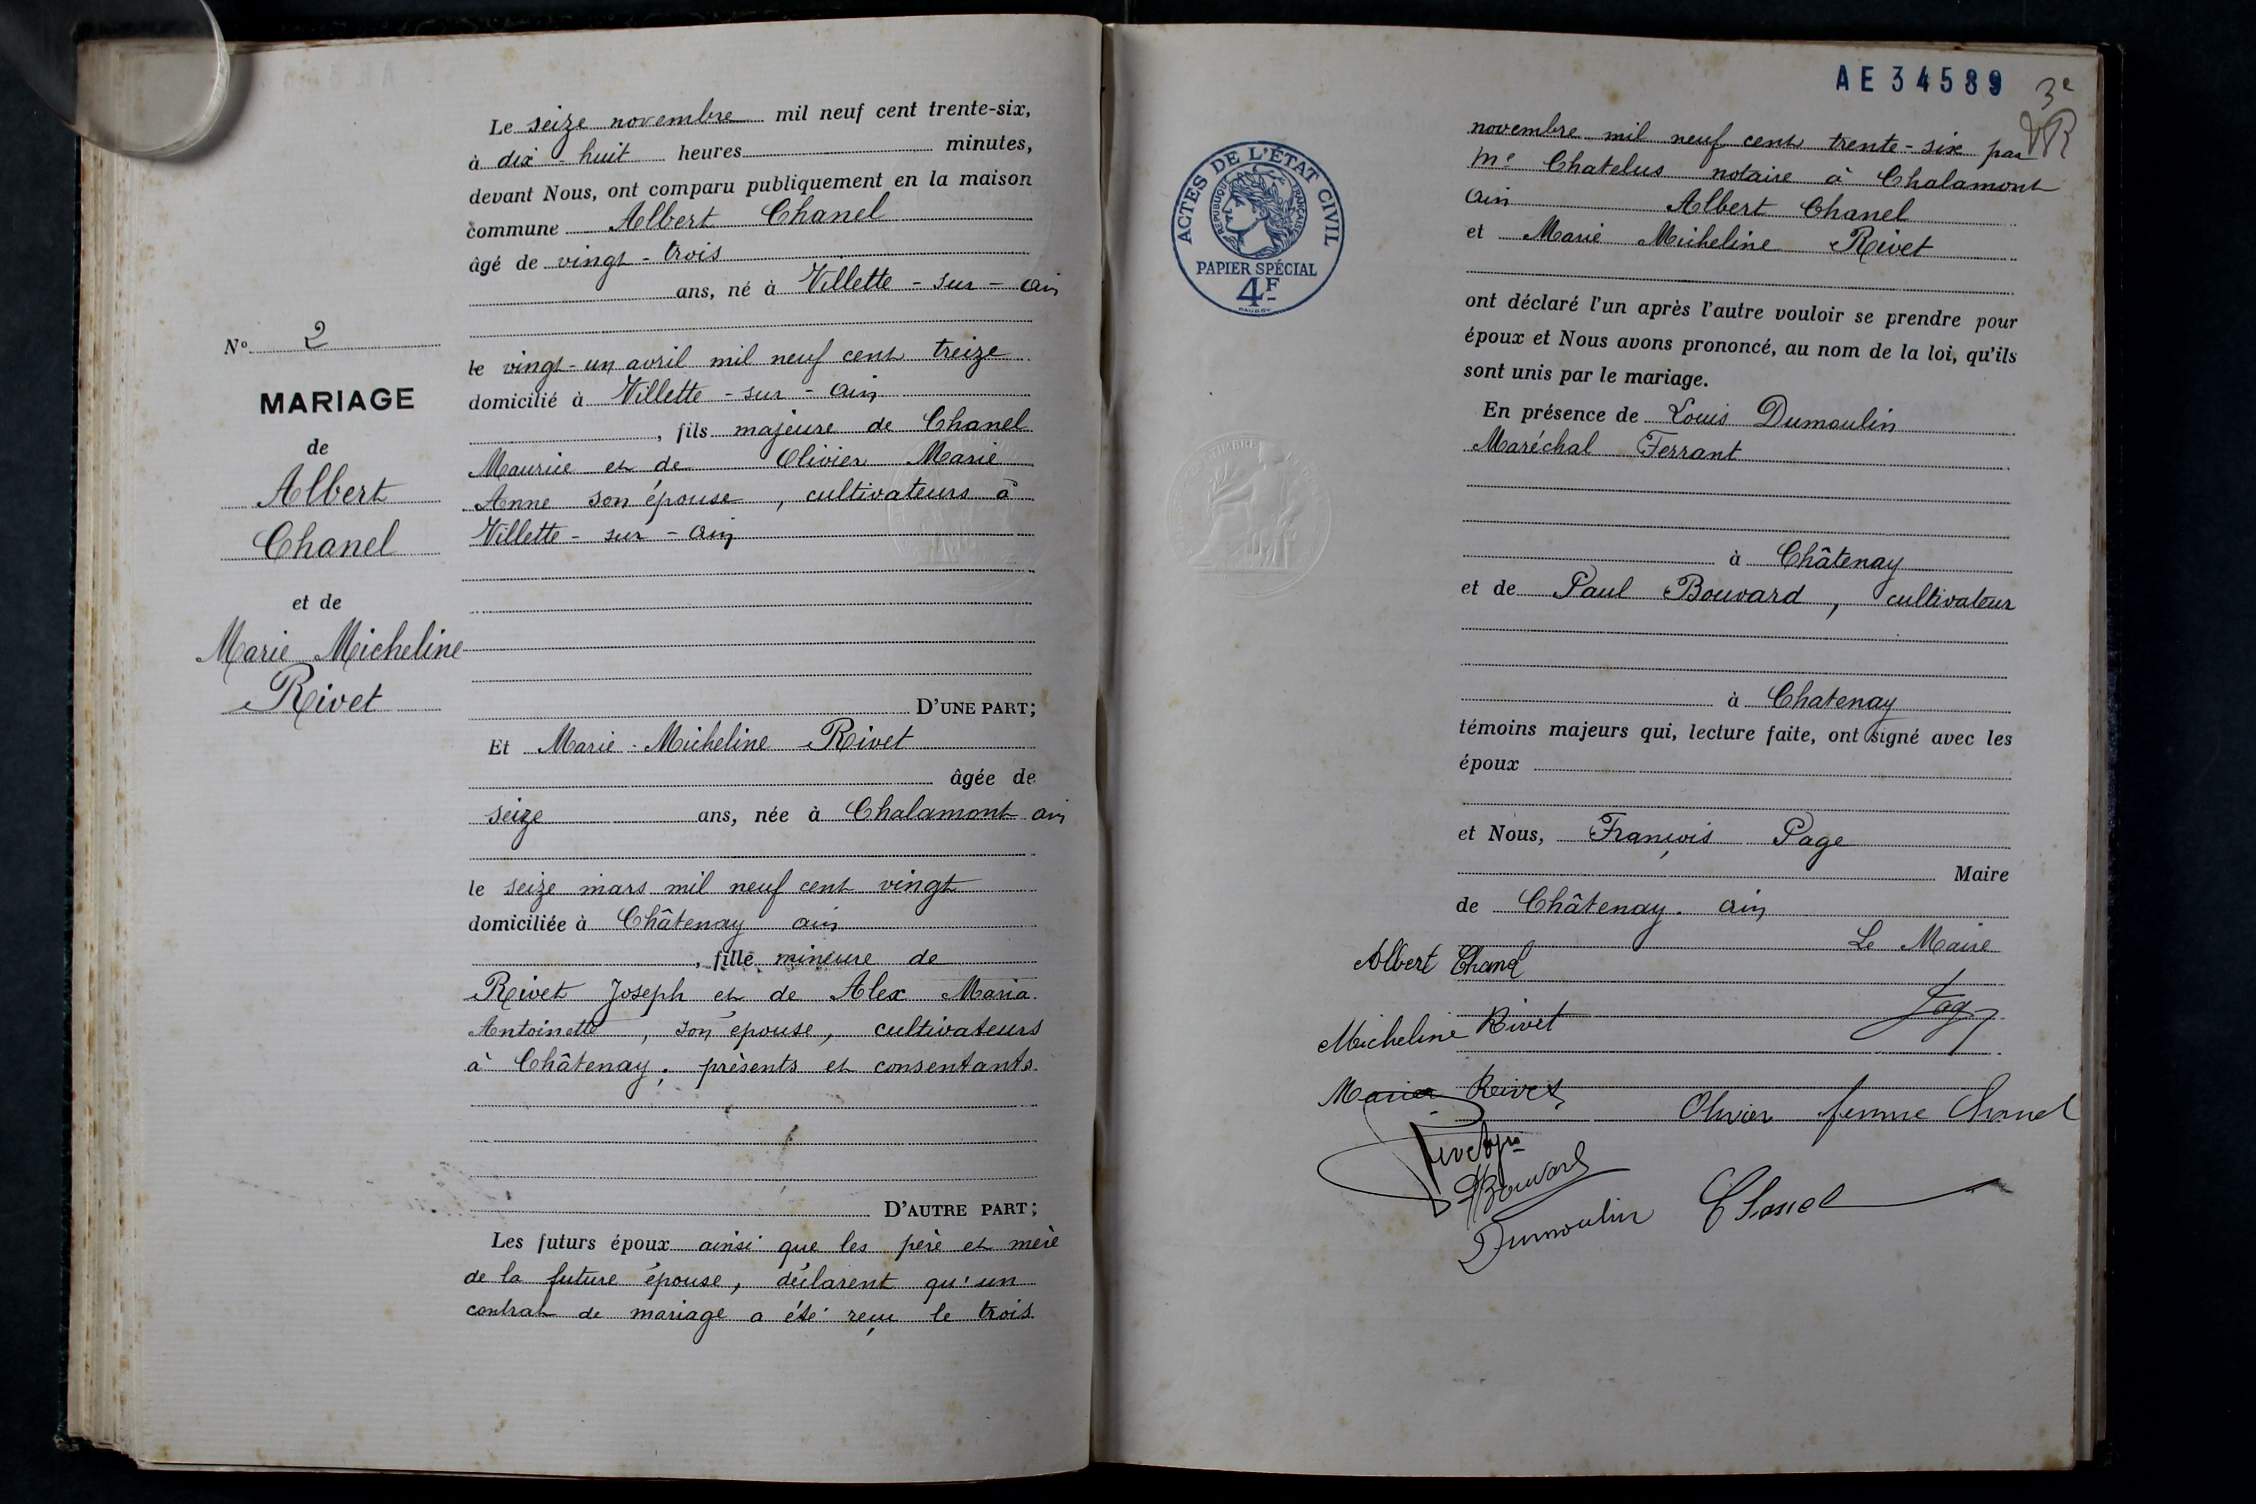 Le seize novembre mil neuf cent trente-six,
à dix-huit heures minutes,
devant Nous, ont comparu publiquement en la maison
commune Albert Chanel
âgé de vingt-trois
ans, né à Villette-sur-ain
le vingt-un avril mil neuf cent treize
domicilié à Villette-sur-ain
, fils majeure de Chanel
Maurice et de Olivier Marie
Anne son épouse, cultivateurs à
Villette-sur-ain
D'UNE PART;
Et Marie-Micheline Rivet
âgée de
seize ans, née à Chalamont ain
le seize mars mil neuf cent vingt
domiciliée à Châtenay ain
, fille mineure de
Rivet Joseph et de Alex Maria
Antoinette, son épouse, cultivateurs
à Châtenay; présents et consentants.
D'AUTRE PART;
Les futurs époux ainsi que les père et mère
de la future épouse, déclarent qu'un
contrat de mariage a été reçu le trois
N° 2
MARIAGE
de
Albert
Chanel
et de
Marie Micheline
Rivet
AE 34589
3e
ACTES DE L'ÉTAT CIVIL
RÉPUBLIQUE FRANÇAISE
PAPIER SPÉCIAL
4F
TIMBRE
novembre mil neuf cent trente-six par
Me Chatelus notaire à Chalamont
ain Albert Chanel
et Marie Micheline Rivet
ont déclaré l'un après l'autre vouloir se prendre pour
époux et Nous avons prononcé, au nom de la loi, qu'ils
sont unis par le mariage.
En présence de Louis Dumoulin
Maréchal Ferrant
à Châtenay
et de Paul Bouvard, cultivateur
à Chatenay
témoins majeurs qui, lecture faite, ont signé avec les
époux
et Nous, François Page
Maire
de Châtenay. ain
Le Maire
Albert Chanel
Page
Micheline Rivet
Rivet
Olivier femme Chanel
Bouvard
Dumoulin Chanel